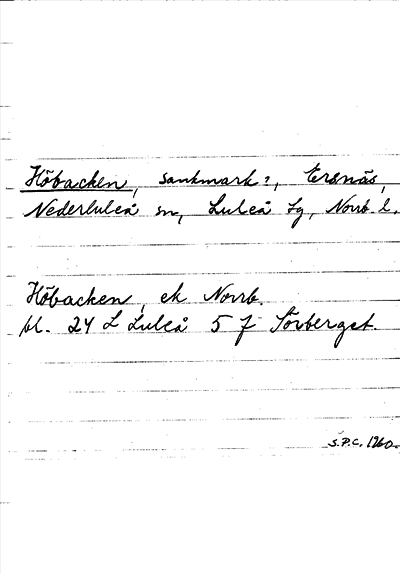 Höbacken, sankmark?, Ersnäs,
Nederluleå sn, Luleå tg, Norrb. l.
Höbacken, ek Norrb.
bl. 24 L Luleå 5 f Sörberget.
S.P.C. 1960